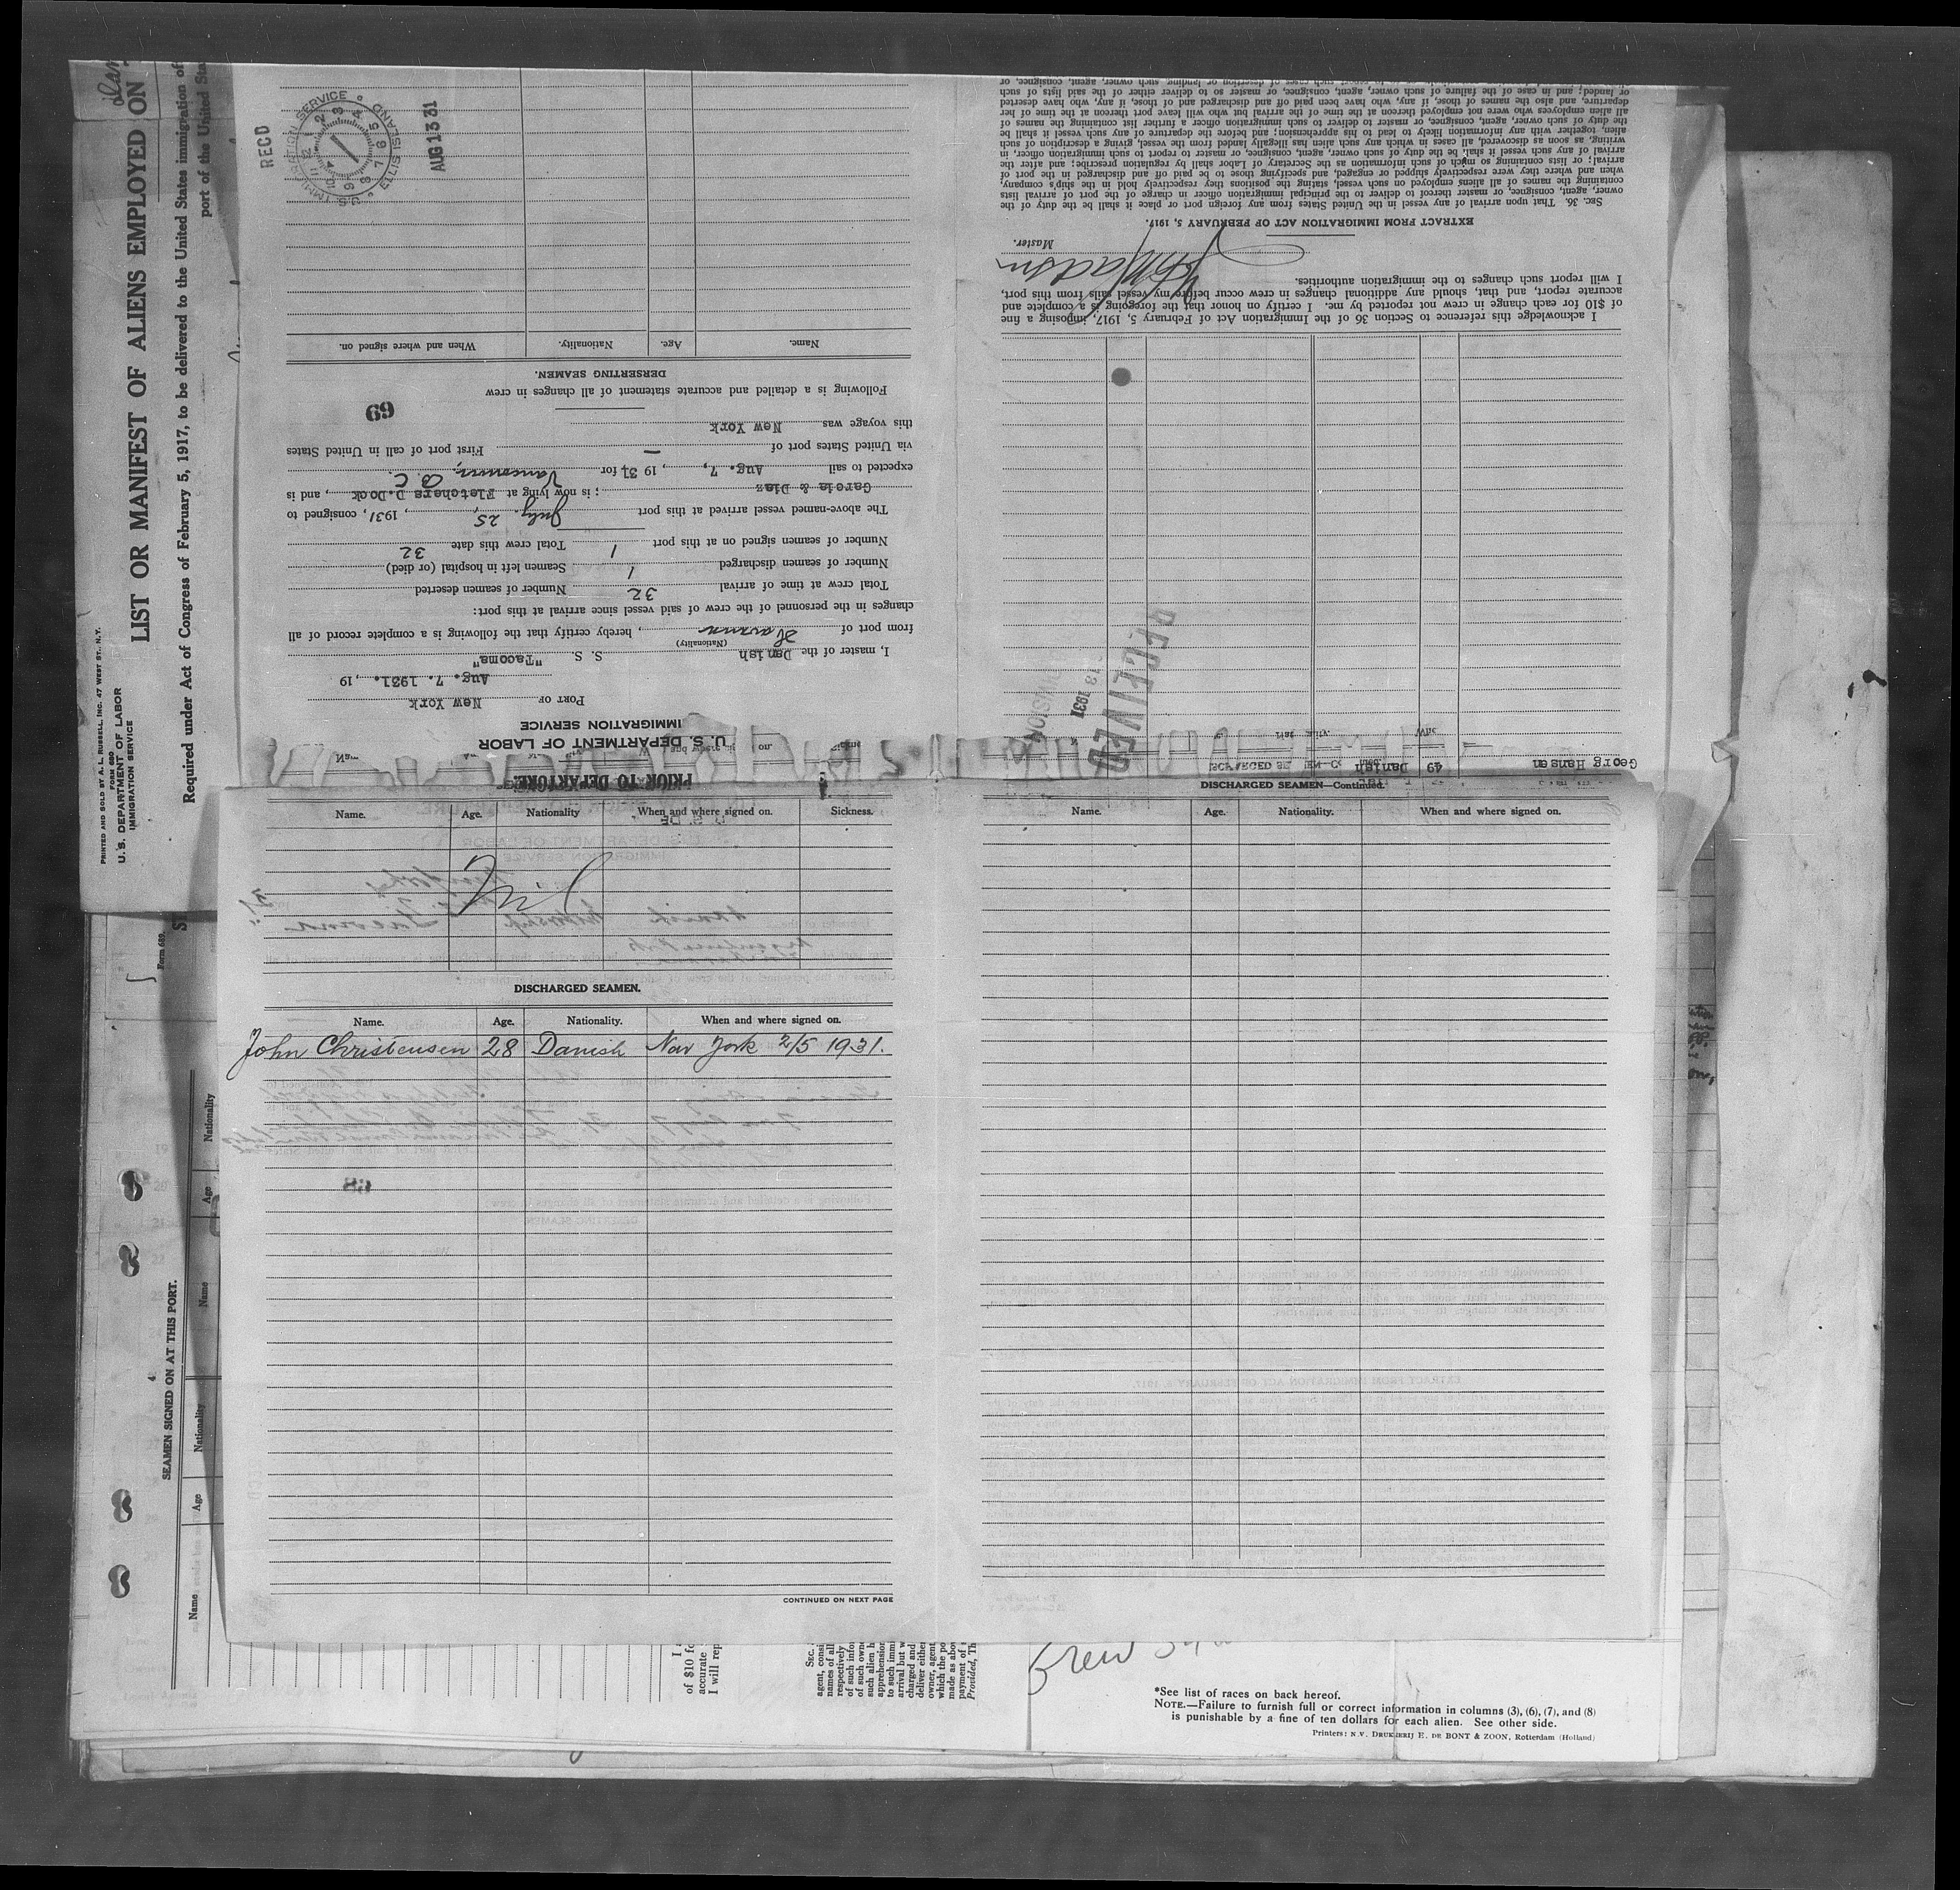 LIST OR MANIFEST OF ALIENS EMPLOYED ON
Required under Act of Congress of February 5, 1917, to be delivered to the United States immigration of
port of the United Sta
PRINTED AND SOLD BY A. L. RUSSELL, INC. 47 WEST ST., N.Y.
FORM 680
U. S. DEPARTMENT OF LABOR
IMMIGRATION SERVICE
PRIOR TO DEPARTURE
U. S. DEPARTMENT OF LABOR
IMMIGRATION SERVICE
PORT OF New York
Aug. 7. 1931. , 19
I, master of the Danish S. S. "Tacoma"
(Nationality)
from port of Havana, hereby certify that the following is a complete record of all
changes in the personnel of the crew of said vessel since arrival at this port:
Total crew at time of arrival 32 Number of seamen deserted
Number of seamen discharged 1 Seamen left in hospital (or died)
Number of seamen signed on at this port 1 Total crew this date 32
The above-named vessel arrived at this port July. 25, 1931, consigned to
Garcia & Diaz; is now lying at Fletchers D.Dock, and is
expected to sail Aug. 7, , 19 31 for Vancouver, B. C.
via United States port of — First port of call in United States
this voyage was New York
69
Following is a detailed and accurate statement of all changes in crew
DERSERTING SEAMEN.
Name. Age. Nationality. When and where signed on.
RECD
U.S. IMMIGRATION SERVICE ELLIS ISLAND
AUG 13 31
Georg Hansen 49 Danish
RECEIVED
1931
I acknowledge this reference to Section 36 of the Immigration Act of February 5, 1917, imposing a fine
of $10 for each change in crew not reported by me. I certify on honor that the foregoing is a complete and
accurate report, and that, should any additional changes in crew occur before my vessel sails from this port,
I will report such changes to the immigration authorities.
Master.
EXTRACT FROM IMMIGRATION ACT OF FEBRUARY 5, 1917.
SEC. 36. That upon arrival of any vessel in the United States from any foreign port or place it shall be the duty of the
owner, agent, consignee, or master thereof to deliver to the principal immigration officer in charge of the port of arrival lists
containing the names of all aliens employed on such vessel, stating the positions they respectively hold in the ship's company,
when and where they were respectively shipped or engaged, and specifying those to be paid off and discharged in the port of
arrival; or lists containing so much of such information as the Secretary of Labor shall by regulation prescribe; and after the
arrival of any such vessel it shall be the duty of such owner, agent, consignee, or master to report to such immigration officer, in
writing, as soon as discovered, all cases in which any such alien has illegally landed from the vessel, giving a description of such
alien, together with any information likely to lead to his apprehension; and before the departure of any such vessel it shall be
the duty of such owner, agent, consignee, or master to deliver to such immigration officer a further list containing the names of
all alien employees who were not employed thereon at the time of the arrival but who will leave port thereon at the time of her
departure, and also the names of those, if any, who have been paid off and discharged and of those, if any, who have deserted
or landed; and in case of the failure of such owner, agent, consignee, or master so to deliver either of the said lists of such
Name. Age. Nationality When and where signed on. Sickness.
Nil
DISCHARGED SEAMEN.
Name. Age. Nationality. When and where signed on.
John Christensen 28 Danish New York 2/5 1931.
CONTINUED ON NEXT PAGE
DISCHARGED SEAMEN—Continued.
Name. Age. Nationality. When and where signed on.
Form 689.
SEAMEN SIGNED ON AT THIS PORT.
Name Age Nationality Name Age Nationality
of $10 fo
accurate
I will rep
SEC.
agent, consi
names of all
respectively
of such infor
of such owne
such alien h
apprehension
to such immi
arrival but w
charged and
deliver either
owner, agent
which the po
made as abo
payment of
Provided, Th
*See list of races on back hereof.
NOTE.—Failure to furnish full or correct information in columns (3), (6), (7), and (8)
is punishable by a fine of ten dollars for each alien. See other side.
Printers: N.V. DRUKKERIJ E. DE BONT & ZOON, Rotterdam (Holland)